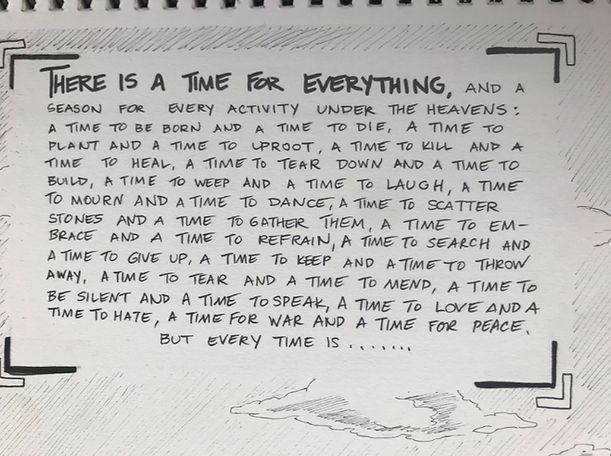 THERE IS A TIME FOR EVERYTHING, AND A
SEASON FOR EVERY ACTIVITY UNDER THE HEAVENS:
A TIME TO BE BORN AND A TIME TO DIE, A TIME TO
PLANT AND A TIME TO UPROOT, A TIME TO KILL AND A
TIME TO HEAL, A TIME TO TEAR DOWN AND A TIME TO
BUILD, A TIME TO WEEP AND A TIME TO LAUGH, A TIME
TO MOURN AND A TIME TO DANCE, A TIME TO SCATTER
STONES AND A TIME TO GATHER THEM, A TIME TO EM-
BRACE AND A TIME TO REFRAIN, A TIME TO SEARCH AND
A TIME TO GIVE UP, A TIME TO KEEP AND A TIME TO THROW
AWAY, A TIME TO TEAR AND A TIME TO MEND, A TIME TO
BE SILENT AND A TIME TO SPEAK, A TIME TO LOVE AND A
TIME TO HATE, A TIME FOR WAR AND A TIME FOR PEACE.
BUT EVERY TIME IS .......